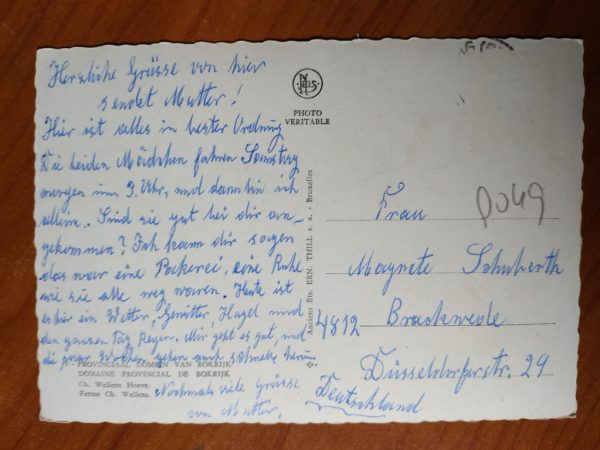 Herzliche Grüsse von hier
sendet Mutter!
Hier ist alles in bester Ordnung
Die beiden Mädchen fahren Samstag
morgen um 3. Uhr, und dann bin ich
allein. Sind sie gut bei dir an-
gekommen? Ich kann dir sagen
das war eine Packerei, eine Ruhe
wie sie alle weg waren. Heute ist
es hier ein Wetter, Gewitter, Hagel und
den ganzen Tag Regen. Mir geht es gut, und
die paar Wochen gehen auch
Nochmals viele Grüsse
von Mutter.
PROVINCIAAL DOMEIN VAN BOKRIJK
DOMAINE PROVINCIAL DE BOKRIJK
Ch. Wellens Hoeve.
Ferme Ch. Wellens.
Anciens Ets. ERN. THILL s. a. - Bruxelles
NELS
PHOTO
VERITABLE
Frau
Magnete Schuberth
4812 Brackwede
Düsseldorferstr. 29
Deutschland